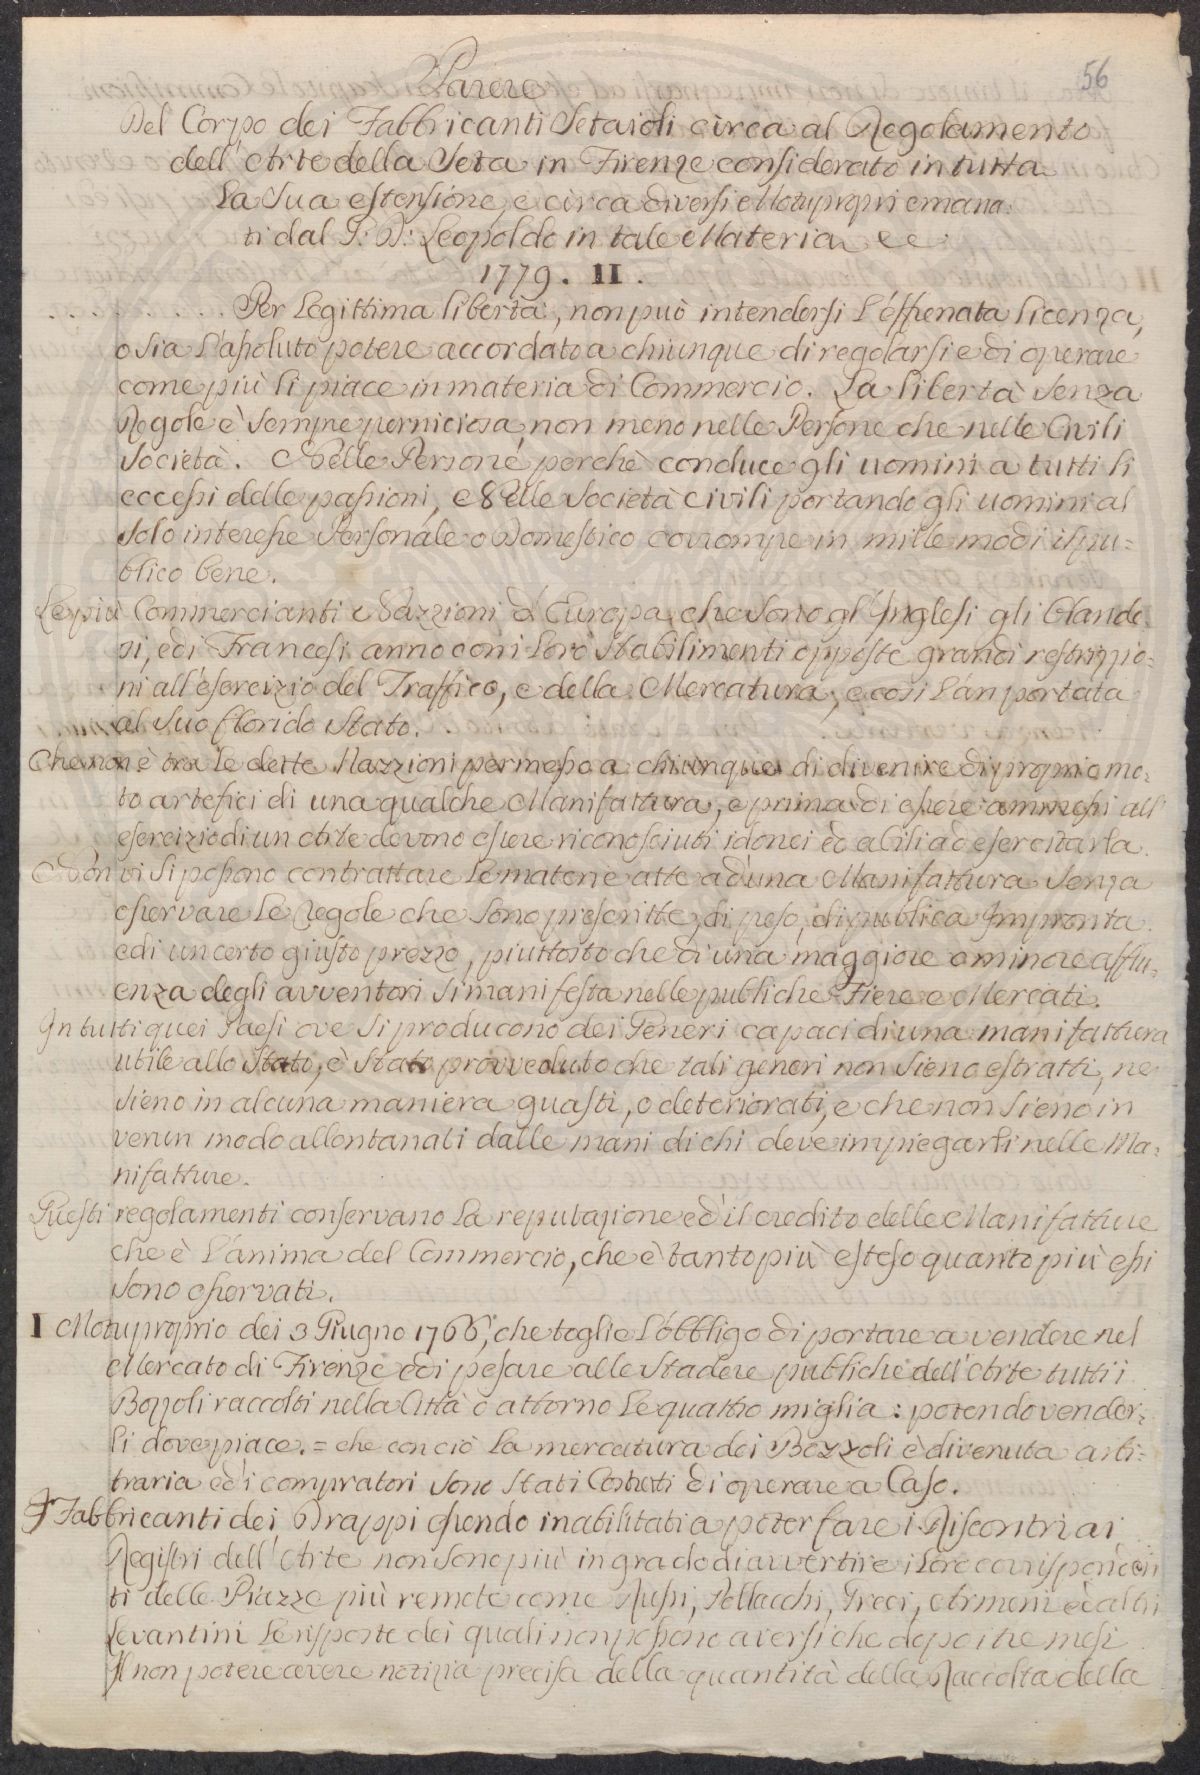 56
Parere
Del Corpo dei Fabbricanti Setaioli circa al Regolamento
dell'Arte della Seta in Firenze considerato in tutta
La Sua estensione, e circa diversi Motupropri emana:
ti dal G: D: Leopoldo in tale Materia
1779. II.
Per Legittima libertà, non può intendersi L'effrenata licenza,
o sia L'assoluto potere accordato a chiunque di regolarsi e di operare
come più li piace in materia di Commercio. La libertà Senza
Regole è Sempre perniciosa, non meno nelle Persone che nelle Civili
Società. Nelle Persone, perchè conduce gli uomini a tutti li
eccessi delle passioni, Nelle Società civili portando gli uomini al
Solo interesse Personale o Domestico corrompe in mille modi il pu=
blico bene.
Le più Commercianti Nazzioni d'Europa che Sono gl'Inglesi gli Olande
si, ed i Francesi anno con i Loro Stabilimenti opposte grandi restrizio=
ni all'esercizio del Traffico, e della Mercatura, e così L'àn portata
al Suo florido Stato.
Che non è tra le dette Nazzioni permesso a chiunque di divenire di proprio mo=
to artefici di una qualche Manifattura, e prima di essere ammessi all'
esercizio di un Arte devono essere riconosciuti idonei ed abili ad esercitarla.
Nòn vi si possono contrattare Le materie atte ad una Manifattura Senza
osservare Le Regole che Sono prescritte, di peso, di publica Impronta
e di un certo giusto prezzo, piuttosto che di una maggiore o minore afflu=
enza degli avventori Si manifesta nelle publiche Fiere e Mercati.
In tutti quei Paesi ove Si producono dei Generi capaci di una manifattura
utile allo Stato, è Stato provveduto che tali generi non Sieno estratti, ne
Sieno in alcuna maniera guasti, o deteriorati, e che non Sieno in
verun modo allontanati dalle mani di chi deve impiegarli nelle Ma=
nifatture.
Questi regolamenti conservano La reputazione ed il credito delle Manifatture
che è L'anima del Commercio, che è tanto più esteso quanto più essi
Sono osservati.
I Motuproprio dei 3 Giugno 1766, che toglie L'obbligo di portare a vendere nel
Mercato di Firenze e di pesare alle Stadere publiche dell'Arte tutti i
Bozzoli raccolti nella Città o attorno Le quattro miglia: potendo vender=
li dove piace. = che con ciò La mercatura dei Bozzoli è divenuta arbi=
traria ed i compratori Sono Stati Costretti di operare a Caso.
I Fabbricanti dei Drappi essendo inabilitati a poter fare i Riscontri ai
Registri dell'Arte non Sono più in grado di avvertire i Loro corrisponden
ti delle Piazze più remote come Russi, Pollacchi, Greci, Armeni ed altri
Levantini Le risposte dei quali non possono aversi che dopo i tre mesi
Il non potere avere notizia precisa della quantità della Raccolta della